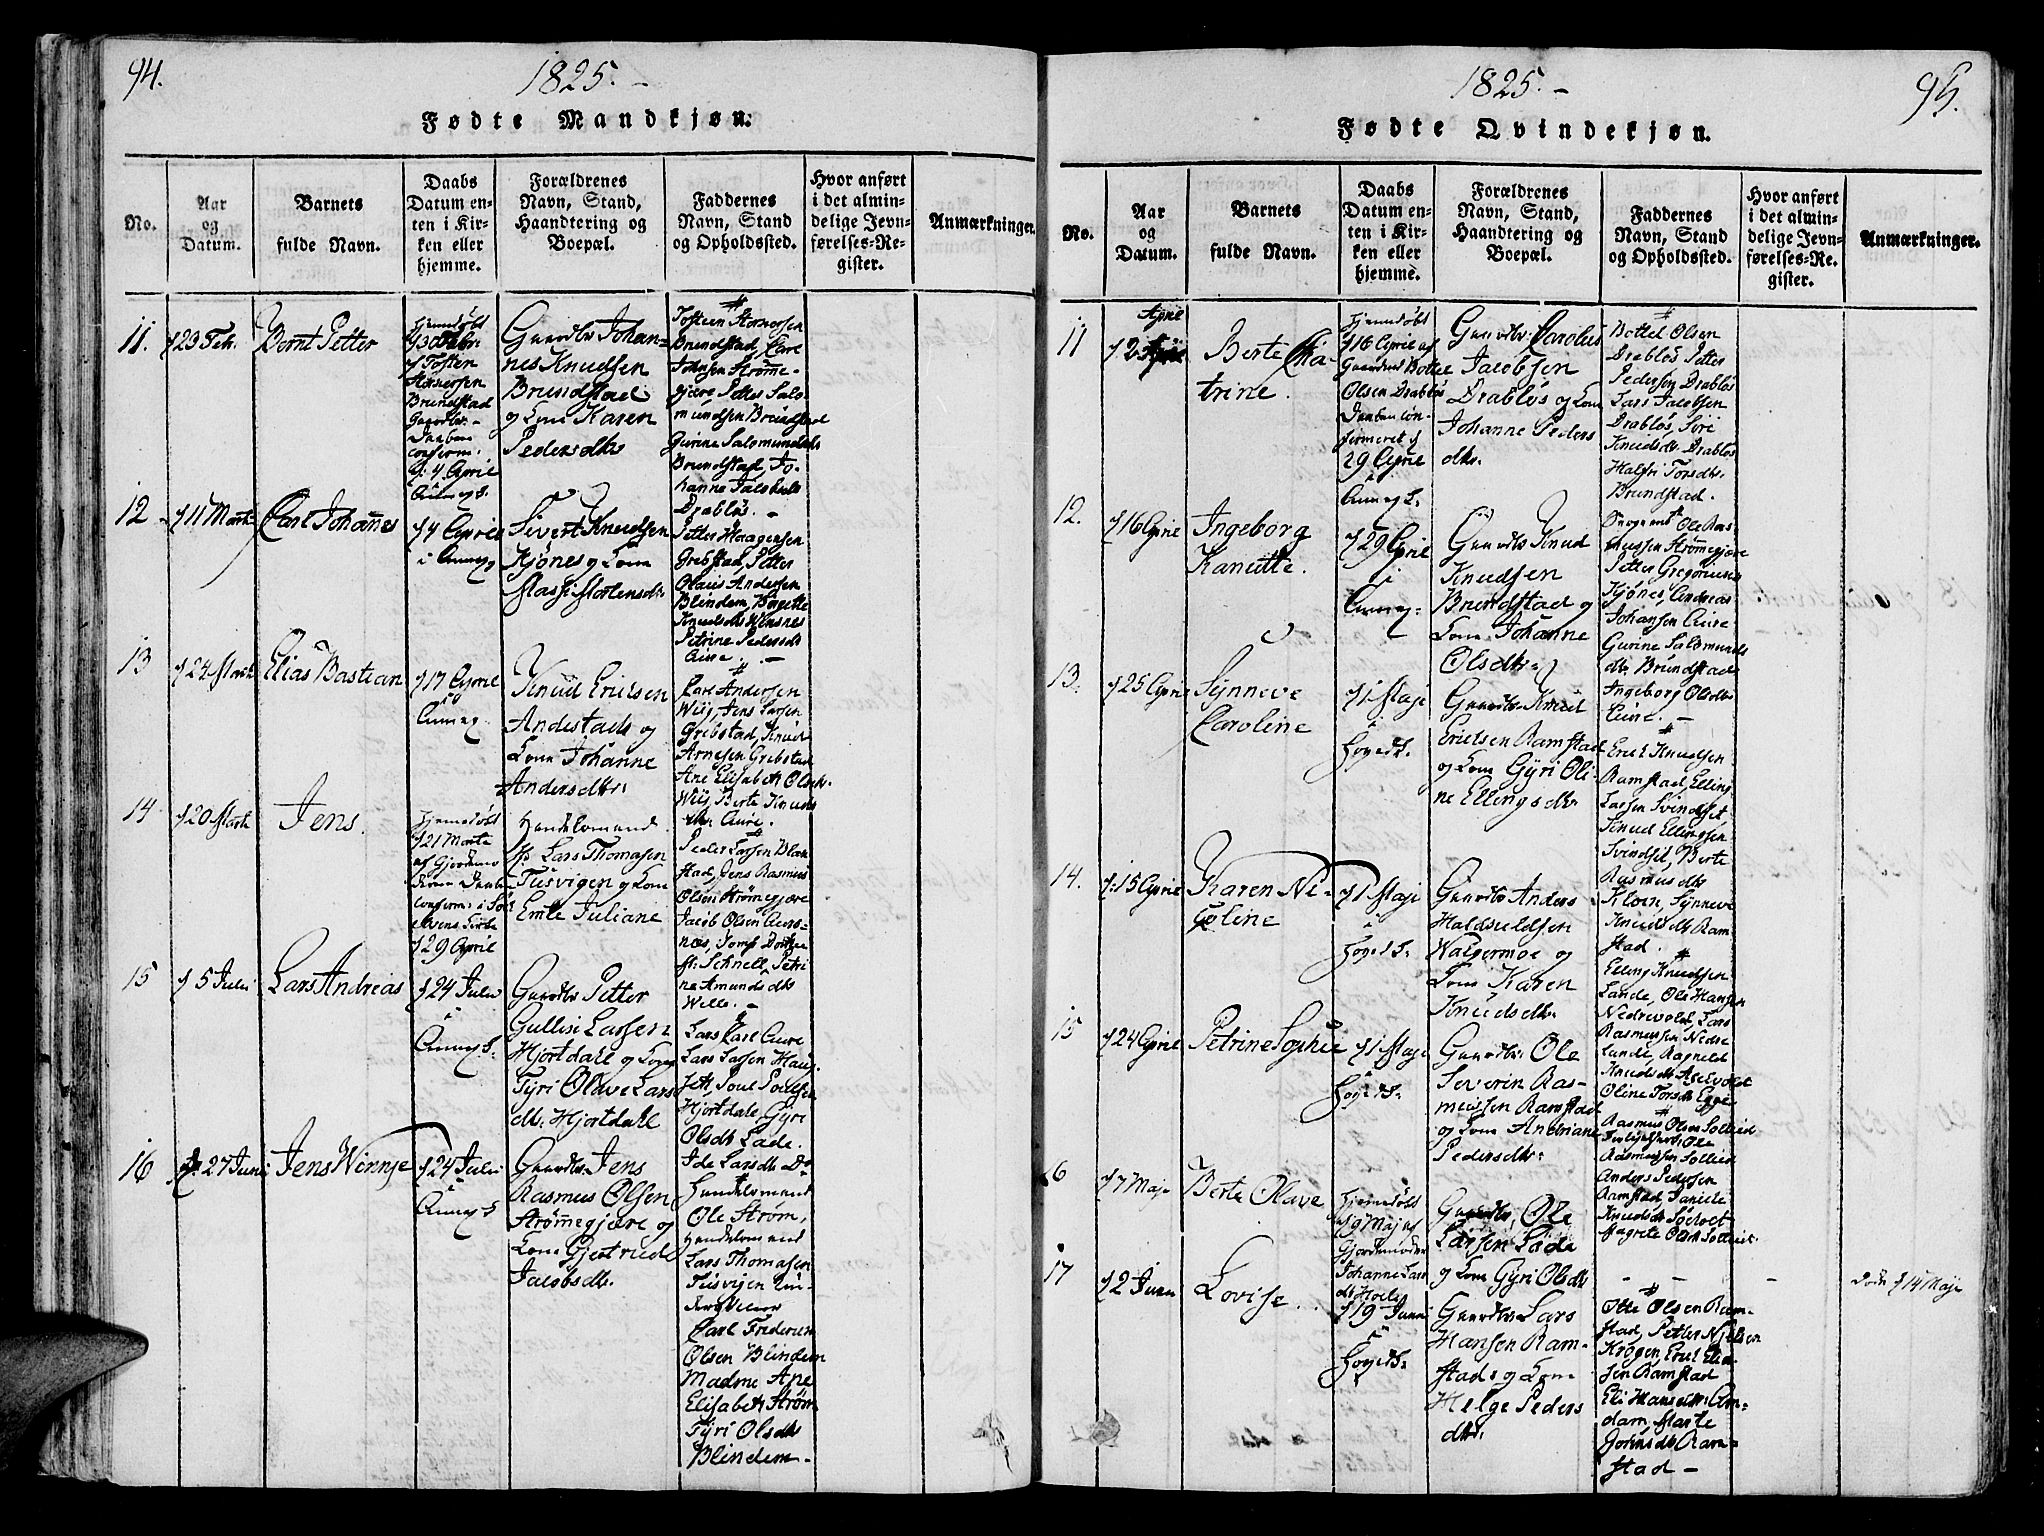 94.
1825. -
Fødte Mandkjøn.
No.
Aar
og
Datum.
Barnets
fulde Navn.
Daabs
Datum en-
ten i Kir-
ken eller
hjemme.
Forældrenes
Navn, Stand,
Haandtering og
Boepæl.
Faddernes
Navn, Stand
og Opholdssted.
Hvor anført
i det almin-
delige Jevn-
førelses-Re-
gister.
Anmærkninger.
11.
Bernt Petter
Hjemedøbt
af Tosten
Brundstad
Daaben
confirm.
4 April
Gaardbr Johan-
nes Knudsen
Brundstad
og Kone Karen
Pedersdtr
Brundstad, Carl
Johnsen Strømme-
gjære Petter Salo-
mundsen Brundstad
Gurine Salomunsdtr
Brundstad, Jo-
hanne Jakobsdtr
Drabløs. -
12
11 Marts
Carl Johannes
4 April
i
Sivert Knudsen
Kjønes og Kone
Masse Mortensdtr
Petter Haagensen
Grebstad, Petter
Olaus Andersen
Blindem, Birgitte
Knudsdtr Weisnes
Petrine Pedersdtr
Aure. -
13
24 Marts
Elias Bastian
17 April
Knud Eriksen
Andestad og
Kone Johanne
Andersdtr
Carl Andersen
Wiig, Jens Larsen
Grebstad, Knud
Arnesen Grebstad
Ane Elisabeth Olsdtr
Wiig Berte Knuds
dtr Aure.
14
20 Marts
Jens.
Hjemedøbt
21 Marts
af Gjordemo
29 April
Handelsmand
Lars Thomasen
Tusvigen og Kone
Emle Juliane
Peder Larsen Blak
stad, Jens Rasmus
Olsen Strømegjære
Jacob Olsen Aurs-
nes, Jomf. Dorthea
Schnell, Petri
ne Amundsdtr
Welle. -
15
5 Juli
Lars Andreas
24 Juli
i
Gaardbr Petter
Gullik Larsen
Hjortdahl og Kone
Gyri Olave Lars
dtr Hjortdahl
Lars Carl Aure
Lars Larsen Haug
Poul Poulsen
Hjortdahl, Gyri
Olsdtr Lade.
Ide Larsdtr Do
16
27 Juni
Jens Winnje
24 Juli
i
Gaardbr Jens
Rasmus Olsen
Strømmegjære og
Kone Gjertrude
Jacobsdtr.
Handelsmand
Ole Strøm,
Handelsmand
Lars Thomasen
Tusvigen
Carl Frederich
Olsen Blindem
Madme Ane
Elisabeth Strøm
Gyri Olsdtr
Blindem. -
1825. -
95.
Fødte Qvindekjøn.
No.
Aar
og
Datum.
Barnets
fulde Navn.
Daabs
Datum en-
ten i Kir-
ken eller
hjemme.
Forældrenes
Navn, Stand,
Haandtering og
Boepæl.
Faddernes
Navn, Stand
og Opholdssted.
Hvor anført
i det almin-
delige Jevn-
førelses-Re-
gister.
Anmærkninger.
11
April
2
Berte Cha-
trine.
Hjemedøbt
16 April af
Olsen Drabløs
Daaben con-
firmeret
29 April
Gaardbr Carolus
Jacobsen
Drabløs og Kone
Johanne Peders
dtr.
Bottel Olsen
Drabløs Petter
Pedersen Drabløs
Lars Jacobsen
Drabløs, Siri
Knudsdtr Drabløs
Brundstad.
12.
16 April
Ingeborg
Kanutte.
29 April
i
Gaardbr Knud
Knudsen
Brundstad og
Kone Johanne
Olsdtr
Ole Ras-
mussen Strømegjære
Petter Gregoriusen
Kjønes, Andreas
Johansen Aure
Gurine Salomunds
dtr Brundstad
Ingeborg Olsdtr
Aure. -
13.
25 April
Synneve
Caroline
1 Maje
i
Gaardbr Knud
Eriksen Ramstad
og Kone Gyri Oli-
ne Ellingsdtr
Erik Knudsen
Ramstad, Elling
Larsen Svindset
Knud Ellingsen
Svindset, Berte
Rasmusdtr
Kloen, Synneve
Knudsdtr Ram
stad.
14.
15 April
Karen Ni-
coline
1 Maji
i
Gaardbr Anders
Haldveldsen
Walgermoe og
Kone Karen
Knudsdtr
Elling Knudsen
Lande, Ole Hansen
Nedrevold, Lars
Rasmussen Nedre
lande, Ragnild
Knudsdtr Aselvold
15
24 April
Petrine Sophie
1 Maje
i
Gaardbr Ole
Severin Ras-
mussen Ramstad
og Kone Andriane
Pedersdtr
Rasmus Olsen Solleid
Rasmussen Sollied
Anders Pedersen
Ramstad Daniele
16
7 Maje
Berte Olave
Hjemedøbt
9 Maj af
Gjordemoder
Johanne Lars
dtr
Gaardbr Ole
Larsen Lade
og Kone Gyri Olsdtr
- - - -
Døde 14 Maje
17
2 Juni
Lovise.
19 Juni
i
Gaardbr Lars
Hansen Ram-
stad og Kone
Helge Peders
dtr
Otte Olsen Ram-
stad, Petter Nielsen
Krogen, Erik Elia-
sen Ramstad
Eli Hansdtr Am-
dam, Marte
Ram-
stad -